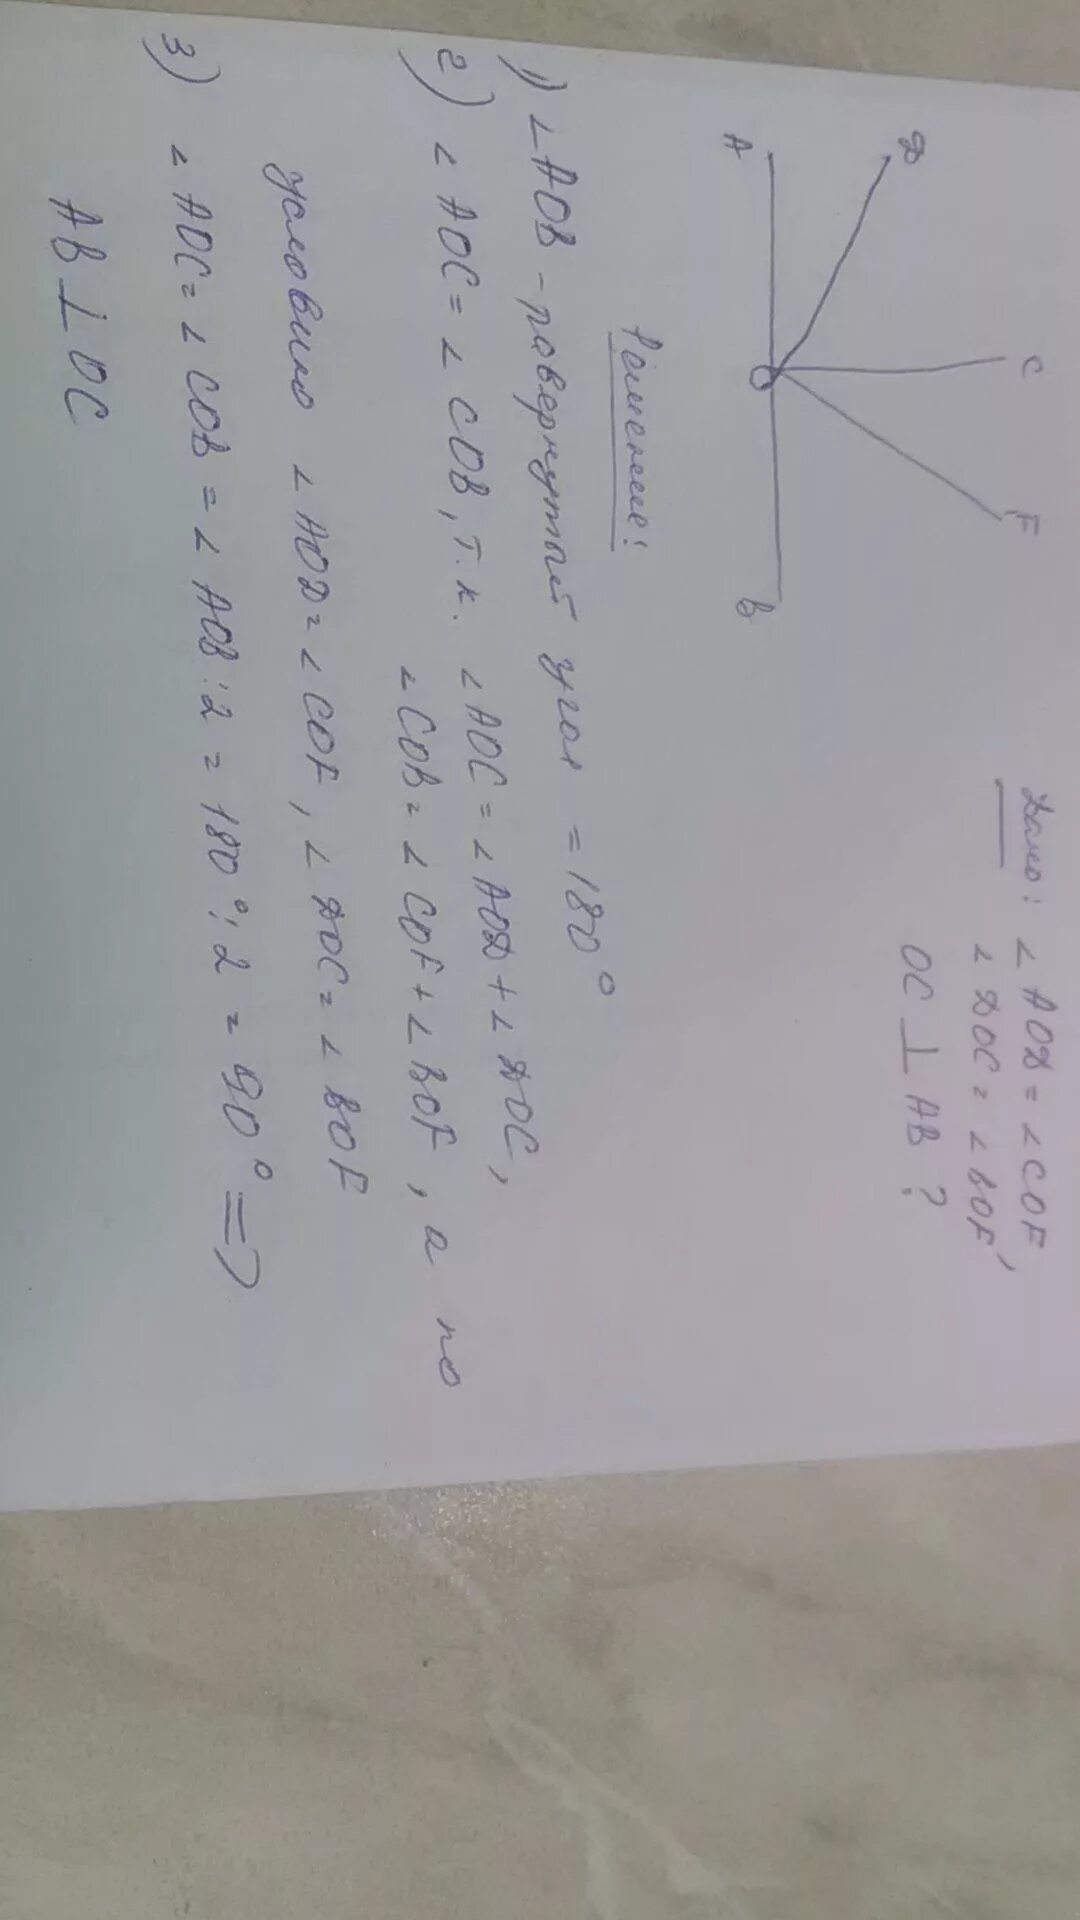 D
C
F
A
O
B
Дано: ∠AOD = ∠COF,
∠DOC = ∠BOF
OC ⊥ AB ?
Решение:
1) ∠AOB - развернутый угол = 180°
2) ∠AOC = ∠COB, т.к. ∠AOC = ∠AOD + ∠DOC,
∠COB = ∠COF + ∠BOF, а по
условию ∠AOD = ∠COF, ∠DOC = ∠BOF
3) ∠AOC = ∠COB = ∠AOB : 2 = 180° : 2 = 90° =>
AB ⊥ OC